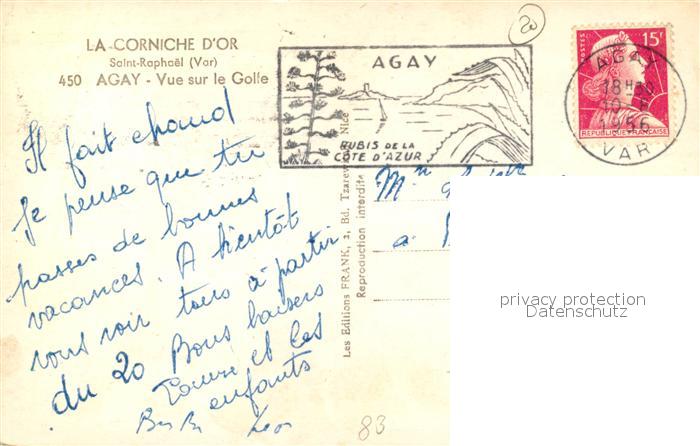 LA CORNICHE D'OR
Saint-Raphaël (Var)
450 AGAY - Vue sur le Golfe
20
AGAY
RUBIS DE LA
CÔTE D'AZUR
15F
REPUBLIQUE FRANÇAISE
AGAY
18H30
10-8
1956
VAR
Il fait chaud
Je pense que tu
passes de bonnes
vacances. A bientôt
vous voir tous à partir
du 20 Bons baisers
et les
enfants
Les Editions FRANK, 2, Bd. Tzarew Nice
Reproduction interdite
à
83
privacy protection
Datenschutz